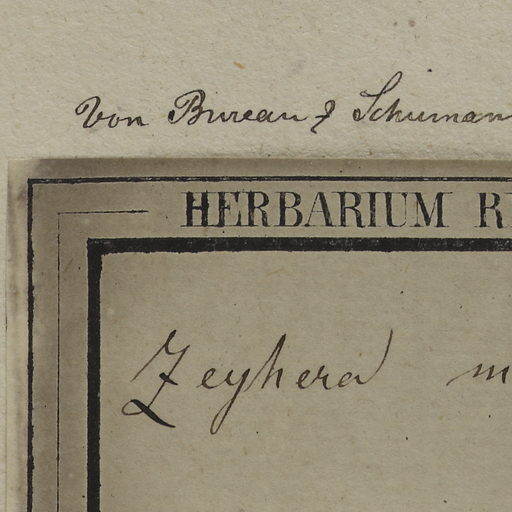 Von Bureau & Schuman
HERBARIUM R
Zeyhera m